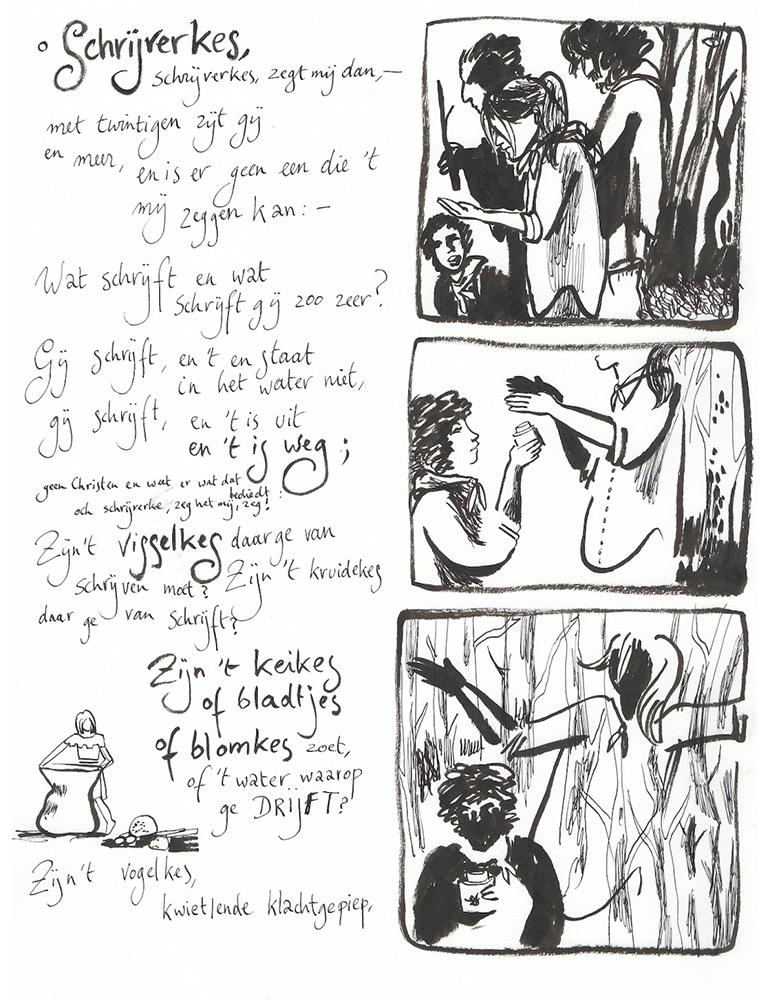 Schrijverkes,
schrijverkes, zegt mij dan,—
met twintigen zijt gij
en meer, en is er geen een die 't
mij zeggen kan: —
Wat schrijft en wat
schrijft gij zoo zeer?
Gij schrijft, en 't en staat
in het water niet,
gij schrijft, en 't is uit
en 't is weg;
geen Christen en wat er wat dat
bediedt:
och schrijverke, zeg het mij, zeg!
Zijn't visselkes daar ge van
schrijven moet? Zijn 't kruidekes
daar ge van schrijft?
Zijn 't keikes
of bladtjes
of blomkes zoet,
of 't water, waarop
ge DRIJFT?
Zijn't vogelkes,
kwietlende klachtgepiep,